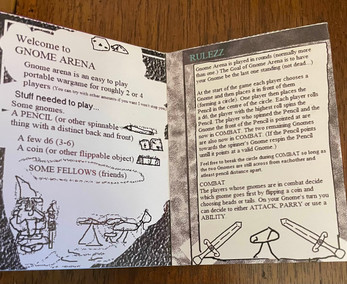 Welcome to
GNOME ARENA
Gnome arena is an easy to play
portable wargame for roughly 2 or 4
players (You can try with other amounts if you want I can't stop you)
Stuff needed to play...
Some gnomes.
A PENCIL (or other spinnable
thing with a distinct back and front)
A few d6 (3-6)
A coin (or other flippable object)
SOME FELLOWS (friends)
RULEZZ
Gnome Arena is played in rounds (normally more
than one.) The Goal of Gnome Arena is to have
your Gnome be the last one standing (not dead...)
At the start of the game each player chooses
a Gnome and then places it in front of them
(forming a circle). One player then places the
Pencil in the centre of the circle. Each player rolls
a d6, the player with the highest roll spins the
Pencil. The player who spinned the Pencil and the
Gnome the front of the Pencil is pointed at are
now in COMBAT. The two remaining Gnomes
are also now in COMBAT. (If the Pencil points
towards the spinner's Gnome respin the Pencil
until it points at a valid Gnome.)
Feel free to break the circle during COMBAT so long as
the two Gnomes are still across from eachother and
atleast pencil distance apart.
COMBAT
The players whose gnomes are in combat decide
which gnome goes first by flipping a coin and
choosing heads or tails. On your Gnome's turn you
can decide to either ATTACK, PARRY or use a
ABILITY.